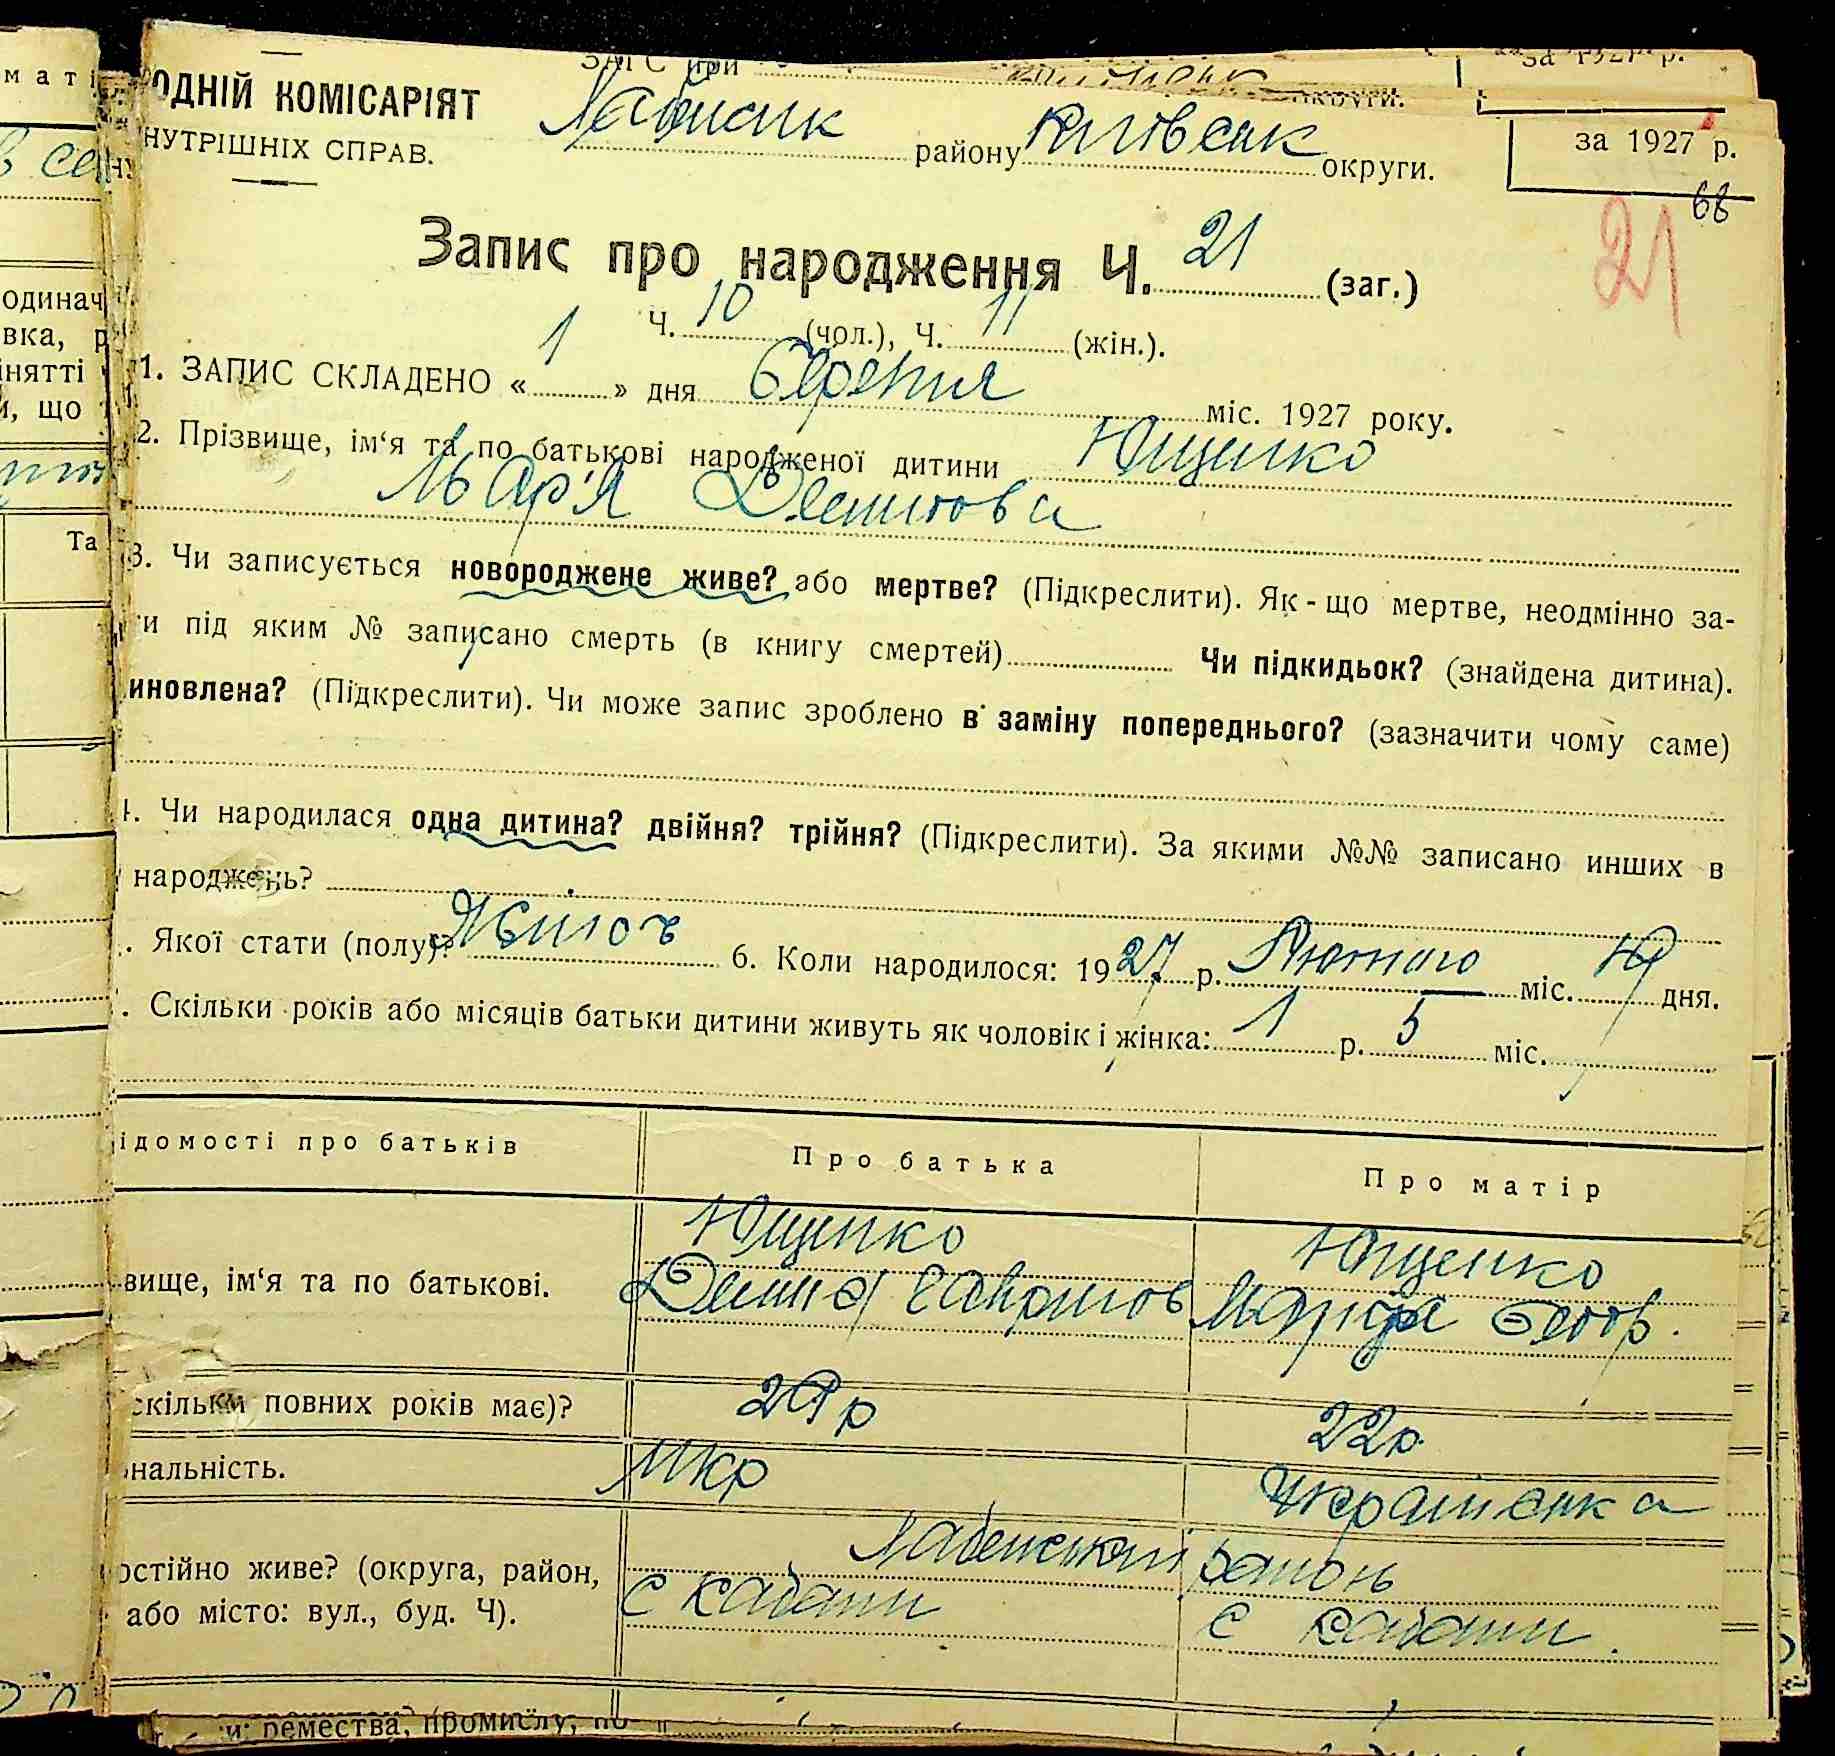 ОДНІЙ КОМІСАРІЯТ
НУТРІШНІХ СПРАВ.
ЗАГС при
району округи.
за 1927 р.
68
21
Запис про народження Ч. 21 (заг.)
Ч. 10 (чол.), Ч. 11 (жін.).
1. ЗАПИС СКЛАДЕНО « 1 » дня Березня міс. 1927 року.
2. Прізвище, ім‘я та по батькові народженої дитини Ющенко
Мар'я Демидова
3. Чи записується новороджене живе? або мертве? (Підкреслити). Як-що мертве, неодмінно за-
ти під яким № записано смерть (в книгу смертей) Чи підкидьок? (знайдена дитина).
иновлена? (Підкреслити). Чи може запис зроблено в заміну попереднього? (зазначити чому саме)
4. Чи народилася одна дитина? двійня? трійня? (Підкреслити). За якими №№ записано инших в
народжень?
. Якої стати (полу)? Жіноч 6. Коли народилося: 1927 р. Лютого міс. дня.
. Скільки років або місяців батьки дитини живуть як чоловік і жінка: 1 р. 5 міс.
ідомості про батьків Про батька Про матір
Ющенко Ющенко
вище, ім‘я та по батькові. Демид Гаврилов Марія Федор.
скільки повних років має)? 29р 22р.
нальність. Укр Українка
остійно живе? (округа, район, район
або місто: вул., буд. Ч). с Кабани с Кабани.
и: ремества, промислу, по